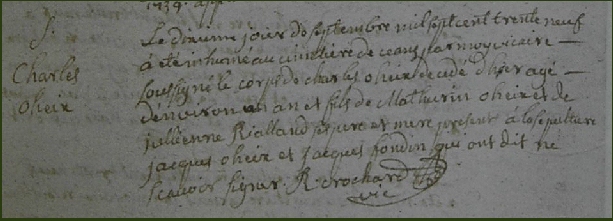 1739. app
S.
Charles
oheix
Le dixième jour de septembre mil sept cent trente neuf
a été inhumé au cimetière de ceans par moy vicaire —
soussigné le corps de charles oheix décédé d'hier agé —
d'environ un an et fils de Mathurin oheix et de
julienne Rialland ses pere et mere present a la sepulture
jacques oheix et jacques fondin qui ont dit ne
scavoir signer R. brochard
vic